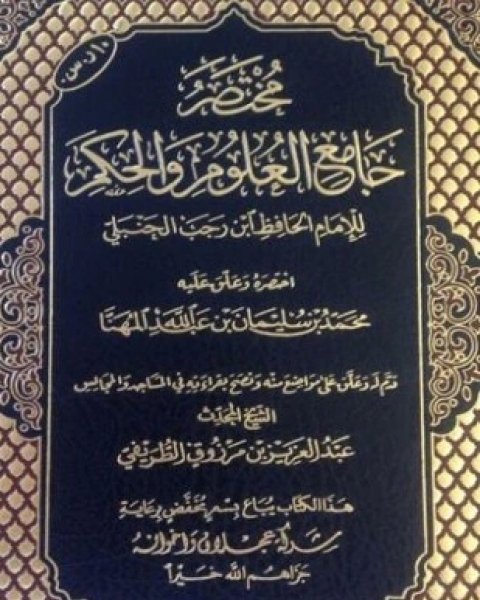 ١٠ ر.س
مُخْتَصَرُ
جَامِعِ العُلُومِ وَالحِكَمِ
لِلإِمَامِ الحَافِظِ ابْنِ رَجَبٍ الحَنْبَلِيِّ
اختصرهُ وَعَلّقَ عَلَيهِ
محمّد بن سُليمَان بن عَبدالله المُهنّا
قدّم له وَعَلّق عَلى مَوَاضِعَ مِنْه وَنصَحَ بِقراءَتِهِ في المَسَاجِدِ وَالمجَالِسِ
الشّيخ المُحَدّث
عَبدُ العَزيز بن مَرزُوق الطّرِيفي
هَذا الكتَاب يُبَاع بِسِعْرٍ مُخَفَّضٍ بِرِعَايَةِ
شركة عجلان واخوانه
جَزَاهم الله خَيراً